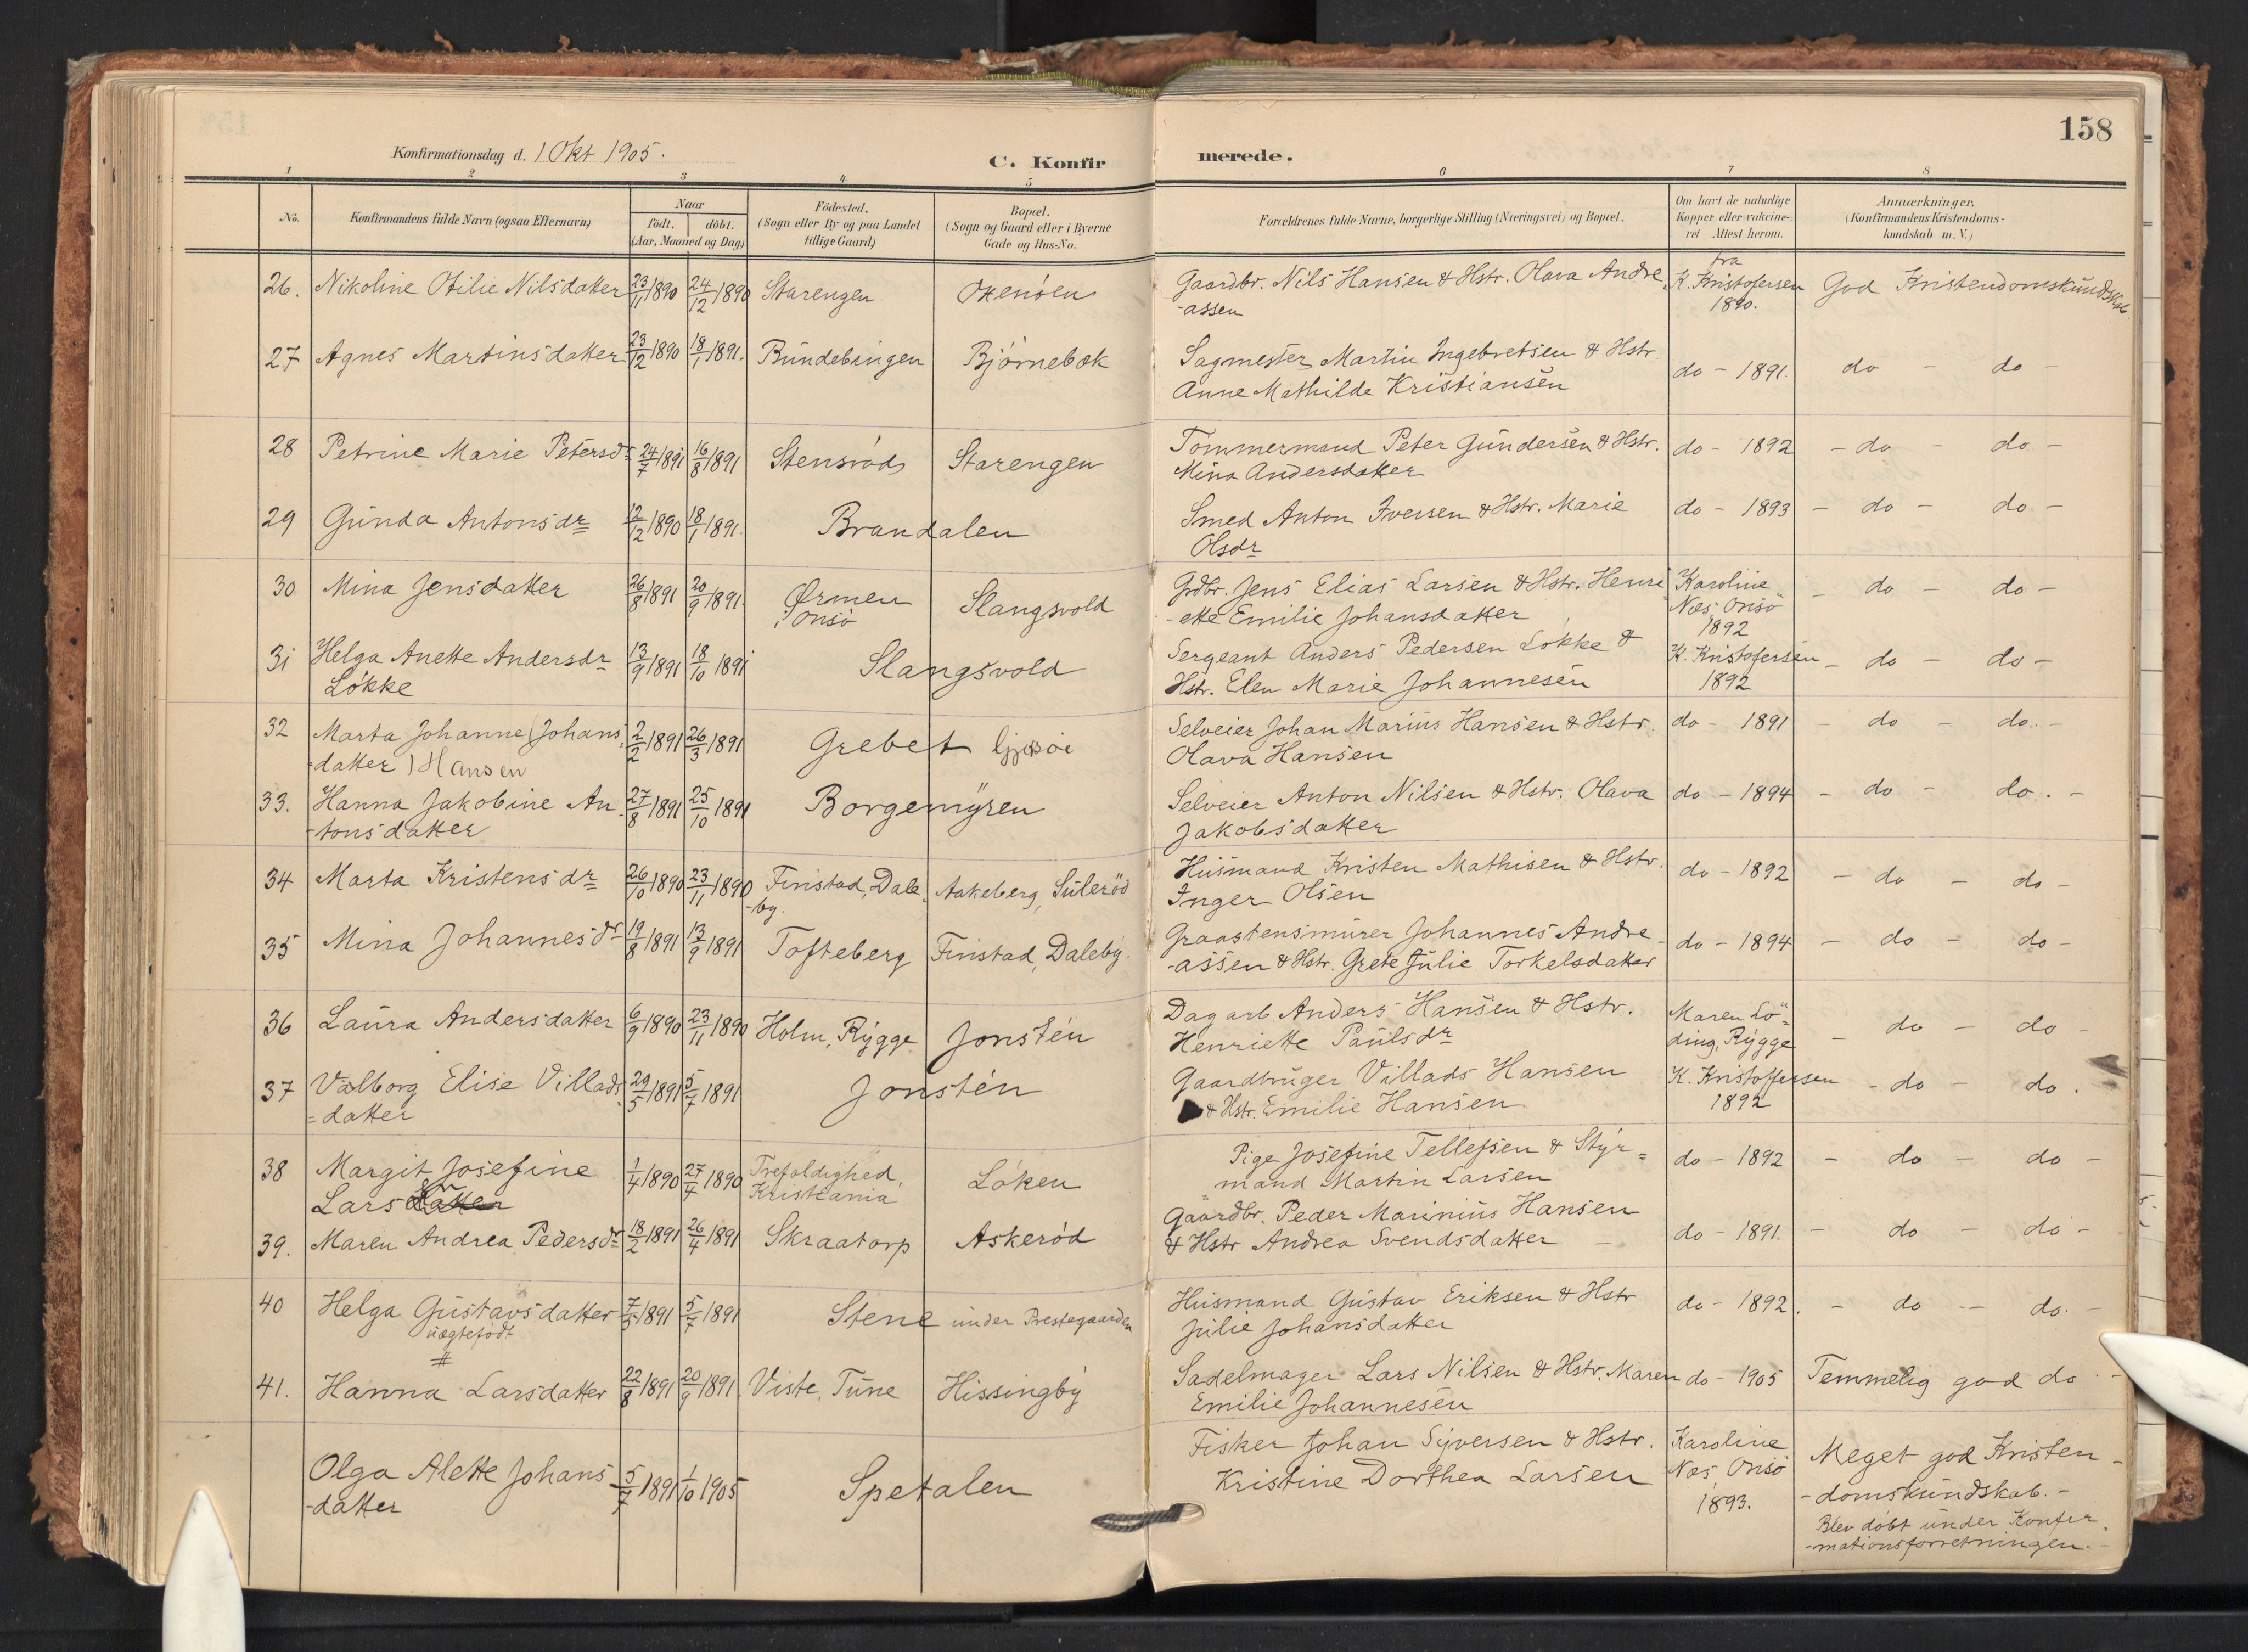 158
Konfirmationsdag d. 1 Okt 1905.
C. Konfirmerede.
1 2 3 4 5 6 7 8
No. Konfirmandens fulde Navn (ogsaa Efternavn) Naar födt. döbt. (Aar, Maaned og Dag) Födested. (Sogn eller By og paa Landet tillige Gaard) Bopæl. (Sogn og Gaard eller i Byerne Gade og Hus-No. Forældrenes fulde Navne, borgerlige Stilling (Næringsvei) og Bopæl. Om havt de naturlige Kopper eller vaccineret Attest herom. Anmærkninger. (Konfirmandens Kristendomskundskab m. V.)
26. Nikoline Otilie Nilsdatter 23/11 1890 24/12 1890 Starengen Oxenöen Gaardbr. Nils Hansen & Hstr. Olava Andre fra K. Kristofersen God Kristendomskundskab.
-assen 1890.
27 Agnes Martinsdatter 23/12 1890 18/1 1891. Bundebingen Björnebæk Sagmester Martin Ingebretsen & Hstr. do - 1891. do - do -
Anne Mathilde Kristiansen
28 Petrine Marie Petersdr 24/7 1891 16/8 1891 Stensröd Starengen Tömmermand Peter Gundersen & Hstr. do - 1892 - do - do -
Mina Andersdatter
29 Gunda Antonsdr 12/12 1890 18/1 1891. Brandalen Smed Anton Iversen & Hstr. Marie do - 1893 - do - do -
Olsdr
30 Mina Jensdatter 26/8 1891 20/9 1891. Ørmen Slangsvold Grdbr. Jens Elias Larsen & Hstr. Henri Karoline - do - do -
i Onsö -ette Emilie Johansdatter Næs, Onsö
1892
31 Helga Anette Andersdr 13/9 1891 18/10 1891 Slangsvold Sergeant Anders Pedersen Lökke & K. Kristofersen - do - do -
Lökke Hstr. Elen Marie Johannesen 1892
32 Marta Johanne (Johans 2/2 1891 26/3 1891 Grebet Selveier Johan Marius Hansen & Hstr. do - 1891 - do - do. -
-datter) Hansen Olava Hansen
33. Hanna Jakobine An 27/8 1891 25/10 1891 Borgemyren Selveier Anton Nilsen & Hstr. Olava do - 1894 - do - do. -
-tonsdatter Jakobsdatter
34 Marta Kristensdr 26/10 1890 23/11 1890 Finstad, Dale Aakeberg, Suleröd Husmand Kristen Mathisen & Hstr. do - 1892 - do - do -
-by. Inger Olsen
35 Mina Johannesdr 19/8 1891 13/9 1891 Tofteberg Finstad, Daleby. Graastensmurer Johannes Andre- do - 1894 - do - do -
-assen & Hstr. Grete Julie Torkelsdatter
36 Laura Andersdatter 6/9 1890 23/11 1890 Holm, Rygge Jonstén Dagarb Anders Hansen & Hstr. Maren Lö= - do - do -
Henriette Paulsdr ding, Rygge
37 Valborg Elise Villads 29/5 1891 5/7 1891 Jonstén Gaardbruger Villads Hansen K. Kristoffersen - do - do.
=datter & Hstr. Emilie Hansen 1892
38 Margit Josefine 1/4 1890 27/4 1890 Trefoldighed, Löken Pige Josefine Tellefsen & Styr= do - 1892 - do - do -
Larsdatter Kristiania mand Martin Larsen
39. Maren Andrea Pedersdr 18/2 1891 26/4 1891 Skraatorp Askeröd Gaardbr. Peder Marinius Hansen do - 1891. - do - do -
& Hstr Andrea Svendsdatter -
40 Helga Gustavsdatter 7/5 1891 5/7 1891 Stene under Prestegaarden Husmand Gustav Eriksen & Hstr do - 1892. - do - do. -
uægtefödt Julie Johansdatter
#
41. Hanna Larsdatter 22/8 1891 20/9 1891 Viste, Tune Hissingby Sadelmager Lars Nilsen & Hstr. Maren do - 1905 Temmelig god do -
Emilie Johannesen
Olga Alette Johans 5/7 1891 1/10 1905 Spetalen Fisker Johan Syversen & Hstr. Karoline Meget god Kristen-
-datter Kristine Dorthea Larsen Næs, Onsö -domskundskab. -
1893. Blev döbt under Konfir
-mationsforretningen. -